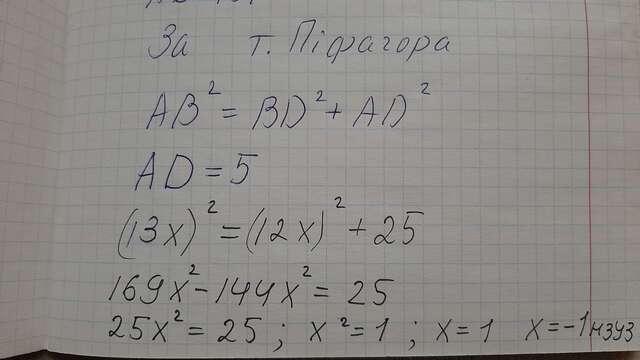 За т. Піфагора
AB² = BD² + AD²
AD = 5
(13x)² = (12x)² + 25
169x² - 144x² = 25
25x² = 25 ; x² = 1 ; x = 1 x = -1 нзуз